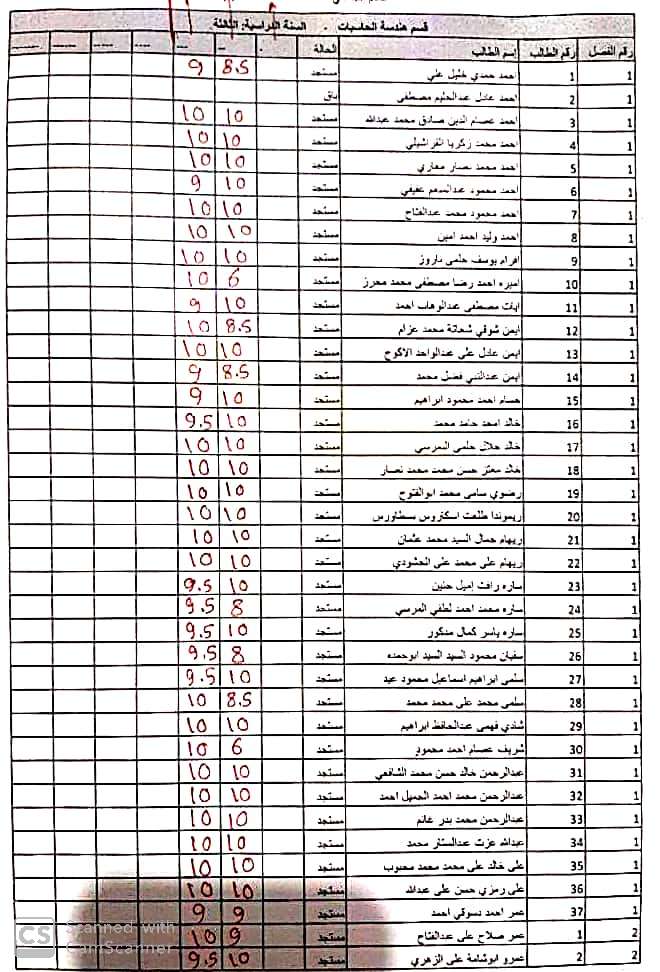 قسم هندسة الحاسبات . السنة الدراسية: الثالثة
رقم الفصل رقم الطالب إسم الطالب الحالة
1 1 احمد حمدي خليل علي مستجد 8.5 9
1 2 احمد عادل عبدالحليم مصطفى باق
1 3 احمد عصام الدين صادق محمد عبدالله مستجد 10 10
1 4 احمد محمد زكريا القراشيلي مستجد 10 10
1 5 احمد محمد نصار معاري مستجد 10 10
1 6 احمد محمود عبدالمنعم عفيفي مستجد 10 9
1 7 احمد محمود محمد عبدالفتاح مستجد 10 10
1 8 احمد وليد احمد امين مستجد 10 10
1 9 افرام يوسف حلمى ماروز مستجد 10 10
1 10 اميره احمد رضا مصطفى محمد محرز مستجد 6 10
1 11 ايات مصطفى عبدالوهاب احمد مستجد 10 9
1 12 ايمن شوقي شحاتة محمد عزام مستجد 8.5 10
1 13 ايمن عادل على عبدالواحد الاكوح مستجد 10 10
1 14 ايمن عبدالنبي فضل محمد مستجد 8.5 9
1 15 حسام احمد محمود ابراهيم مستجد 10 9
1 16 خالد امجد حامد محمد مستجد 10 9.5
1 17 خالد جلال حلمى المرسي مستجد 10 10
1 18 خالد معتز حسن محمد محمد نصار مستجد 10 10
1 19 رضوي سامى محمد ابوالفتوح مستجد 10 10
1 20 ريموندا طلعت اسكاروس بسطاورس مستجد 10 10
1 21 ريهام جمال السيد محمد عثمان مستجد 10 10
1 22 ريهام على محمد على الحشودي مستجد 10 10
1 23 ساره رافت إميل حنين مستجد 10 9.5
1 24 ساره محمد احمد لطفي المرسي مستجد 8 9.5
1 25 ساره ياسر كمال مدكور مستجد 10 9.5
1 26 سفيان محمود السيد السيد ابوحمده مستجد 8 9.5
1 27 سلمى ابراهيم اسماعيل محمود عيد مستجد 10 9.5
1 28 سلمى محمد على محمد محمد مستجد 8.5 10
1 29 شادي فهمى عبدالحافظ ابراهيم مستجد 10 10
1 30 شريف عصام احمد محمود مستجد 6 10
1 31 عبدالرحمن خالد حسن محمد الشافعي مستجد 10 10
1 32 عبدالرحمن محمد احمد الجميل احمد مستجد 10 10
1 33 عبدالرحمن محمد بدر غانم مستجد 10 10
1 34 عبدالله عزت عبدالستار محمد مستجد 10 10
1 35 على خالد على محمد محمد محبوب مستجد 10 10
1 36 على رمزي حسن على عبدالله مستجد 10 10
1 37 عمر احمد دسوقي احمد مستجد 9 9
2 1 عمر صلاح على عبدالفتاح مستجد 9 10
2 2 عمرو ابوشامة على الزهري مستجد 10 9.5
CS Scanned with
CamScanner